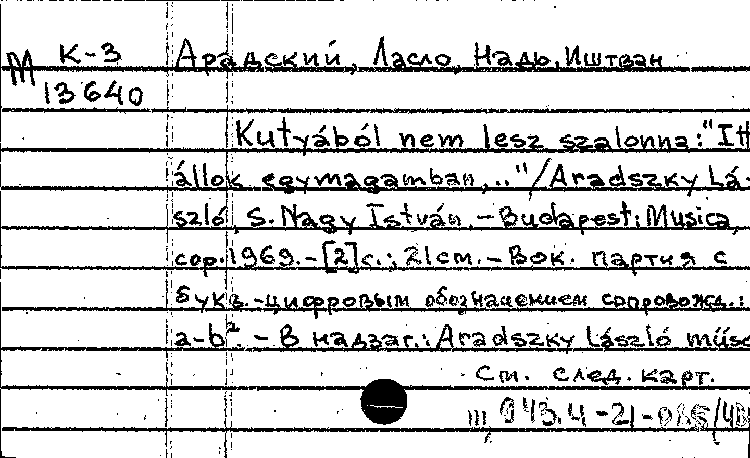 М К-3 Арадский, Ласло, Надь, Иштван
13640
Kutyából nem lesz szalonna: "Itt
állok egymagamban,.." / Aradszky Lá-
szló, S. Nagy István. - Budapest: Musica,
cop. 1969. - [2] с.; 21 см. - Вок. партия с
букв.-цифровым обозначением сопровожд.:
a-b². - В надзаг.: Aradszky László műso
См. след. карт.
Ш 943.4-21-